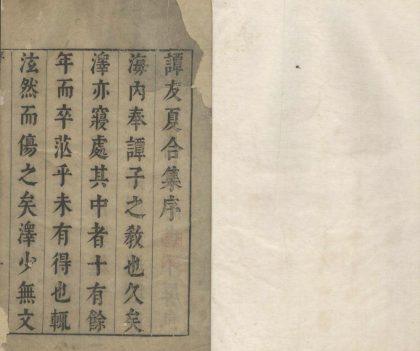 譚友夏合集序
海内奉譚子之教也久矣
澤亦寢處其中者十有餘
年而卒茫乎未有得也輒
泫然而傷之矣澤少無文